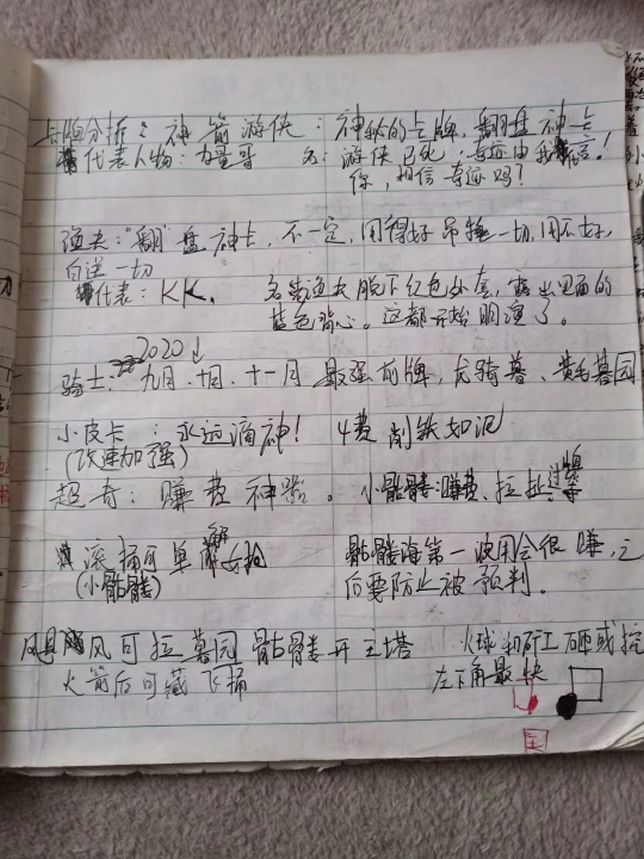 卡牌分析: 神箭游侠: 神秘的卡牌, 翻盘神卡
代表人物: 力量哥 名: 游侠已死, 奇迹由我!
你, 相信奇迹吗?
渔夫: "翻"盘神卡, 不一定, 用得好吊捶一切, 用不好,
白送一切
代表: KK. 名言渔夫脱下红色外套, 露出里面的
蓝色背心。这都开始明渲了。
2020↓
骑士: 九月、十月、十一月 最强前牌, 龙骑墓、黄毛墓园
小皮卡: 永远滴神! 4费 削铁如泥
(改速加强)
超奇: 赚费神器。 小骷髅: 赚费、拉扯、过牌等
滚桶可单解女枪 骷髅海第一波用会很赚, 之
(小骷髅) 后要防止被预判。
飓风可拉墓园骷髅开王塔 火球和矿工砸或挖
火箭后可藏飞桶 左下角最快
王